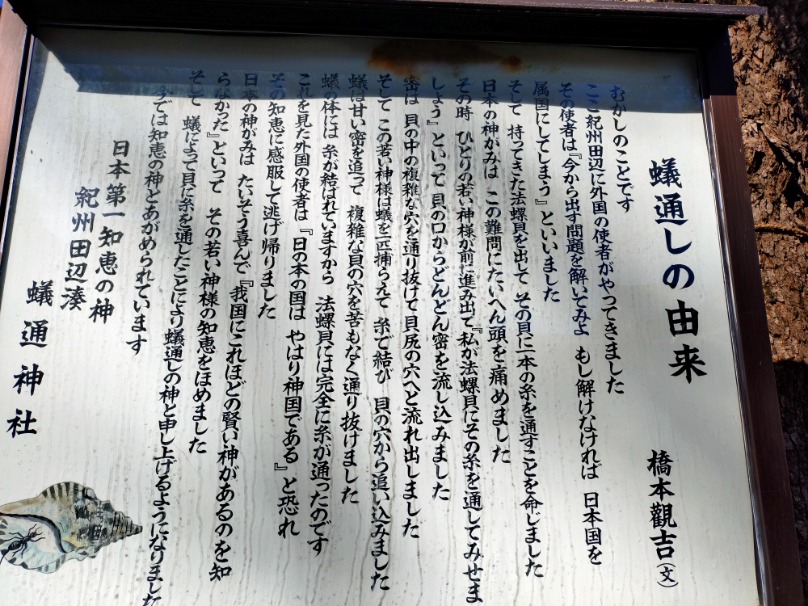 蟻通しの由来
橋本觀吉(文)
むかしのことです
ここ紀州田辺に外国の使者がやってきました
その使者は『今から出す問題を解いてみよ もし解けなければ 日本国を
属国にしてしまう』といいました
そして 持ってきた法螺貝を出して その貝に一本の糸を通すことを命じました
日本の神がみは この難問にたいへん頭を痛めました
その時 ひとりの若い神様が前に進み出て『私が法螺貝にその糸を通してみせま
しょう』といって 貝の口からどんどん密を流し込みました
密は 貝の中の複雑な穴を通り抜けて貝尻の穴へと流れ出しました
そして この若い神様は蟻を一匹捕らえて 糸で結び 貝の穴から追い込みました
蟻は甘い密を追って 複雑な貝の穴を苦もなく通り抜けました
蟻の体には 糸が結ばれていますから 法螺貝には完全に糸が通ったのです
これを見た外国の使者は『日の本の国は やはり神国である』と恐れ
その知恵に感服して逃げ帰りました
日本の神がみは たいそう喜んで『我国にこれほどの賢い神があるのを知
らなかった』といって その若い神様の知恵をほめました
そして 蟻によって貝に糸を通したことにより蟻通しの神と申し上げるようになりました
今では知恵の神とあがめられています
日本第一知恵の神
紀州田辺湊
蟻通神社